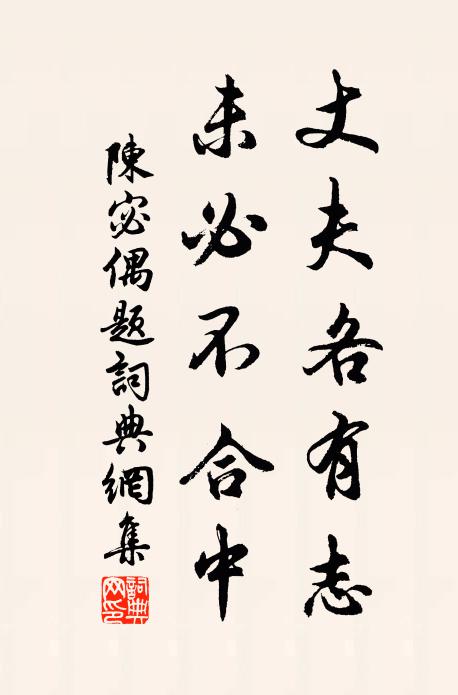 丈夫各有志
未必不合中
陳宓偶題詞典網集
詞典網印